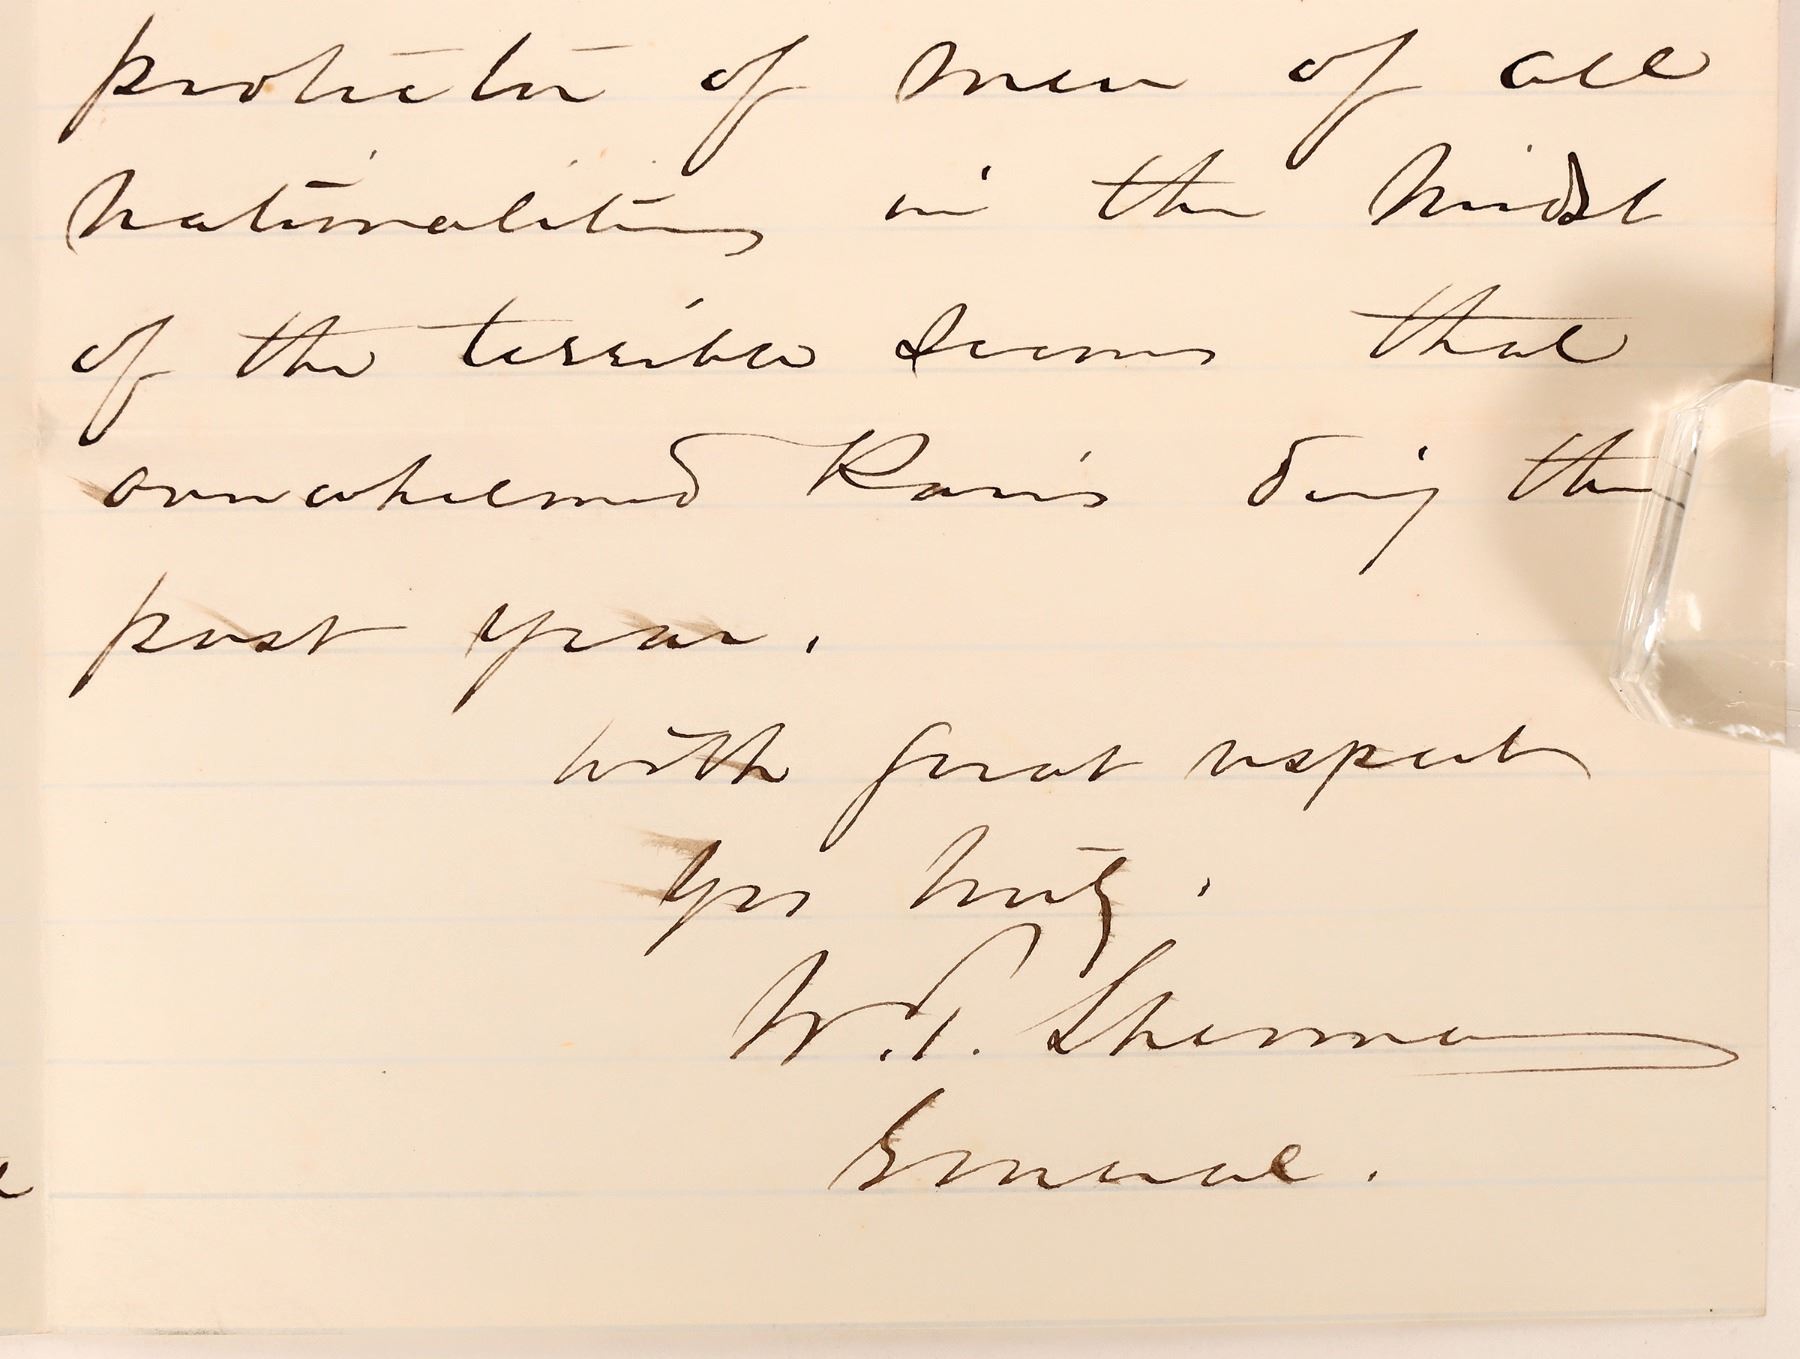 protector of men of all
nationalities in the midst
of the terrible scenes that
overwhelmed Paris during the
past year.
with great respect
Yrs truly.
W. T. Sherman
General.